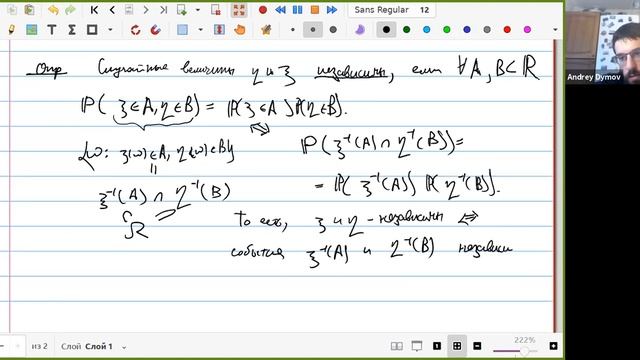 Sans Regular 12
Andrey Dymov
Опр Случайные величины η и ξ независимы, если ∀A, B⊂ℝ
ℙ(ξ∈A, η∈B) = ℙ(ξ∈A)ℙ(η∈B).
{ω: ξ(ω)∈A, η(ω)∈B}
ξ⁻¹(A) ∩ η⁻¹(B)
Ω
ℙ(ξ⁻¹(A) ∩ η⁻¹(B)) =
= ℙ(ξ⁻¹(A)) ℙ(η⁻¹(B)).
То есть, ξ и η - независимы ⇔
события ξ⁻¹(A) и η⁻¹(B) независи
из 2 Слой Слой 1 222%